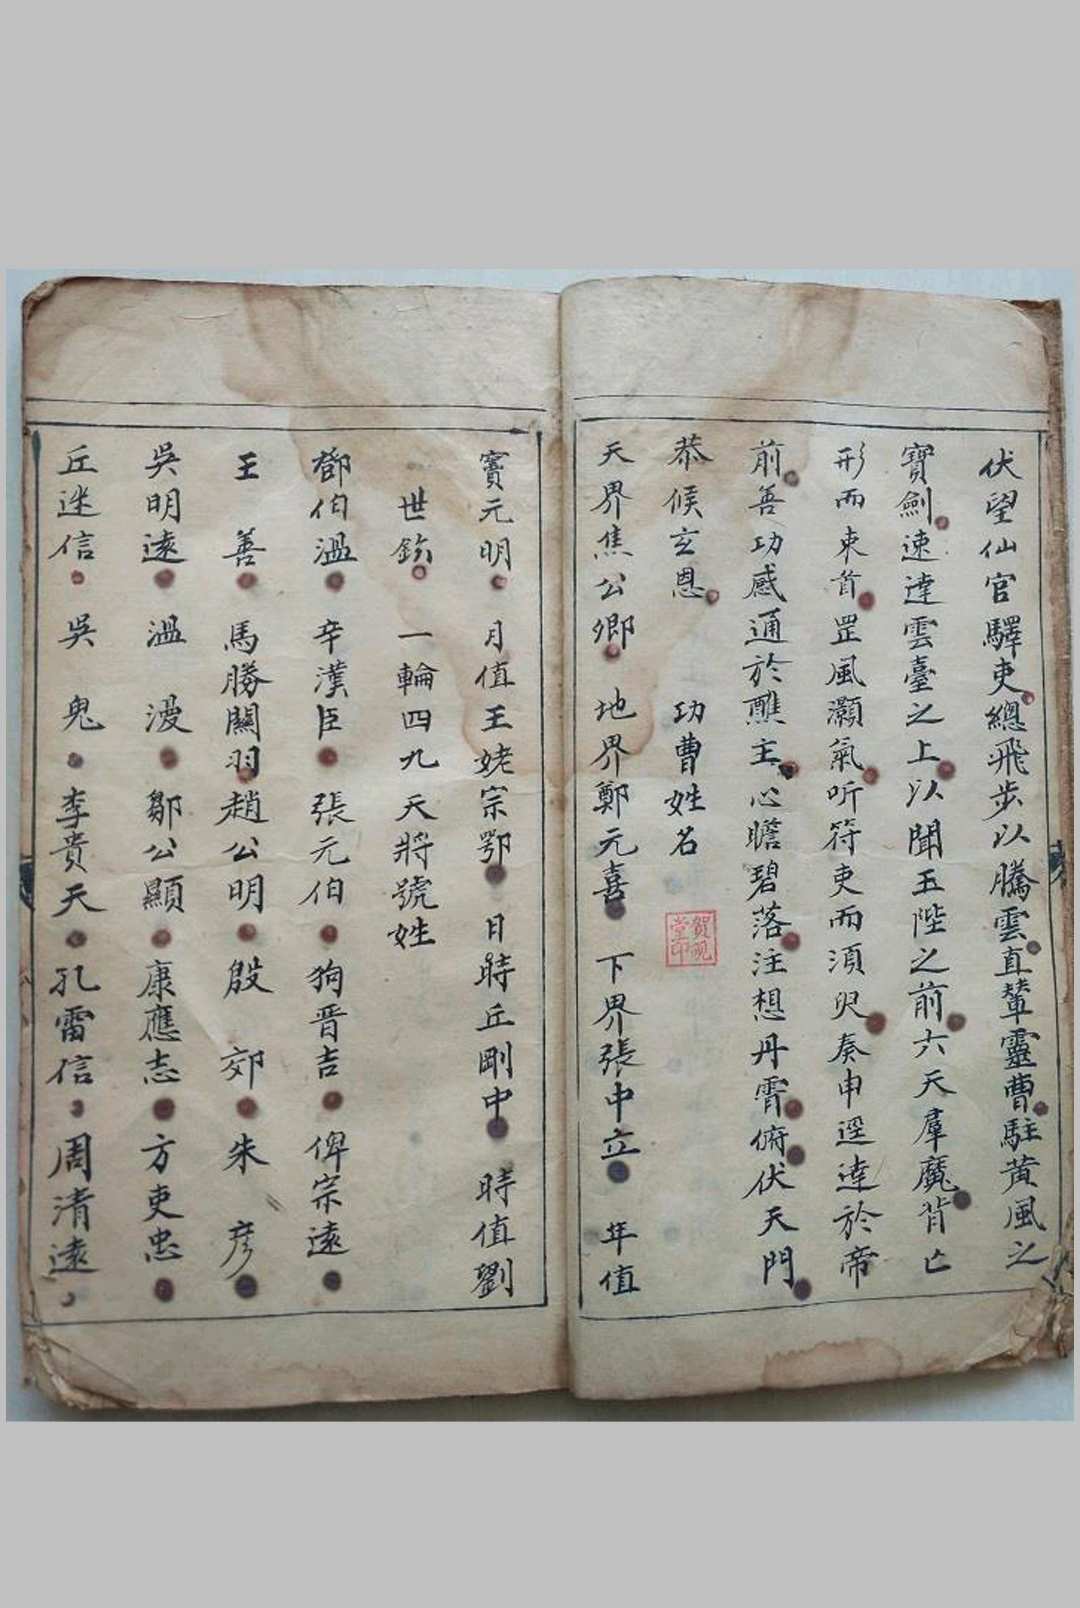 伏望仙官驛吏總飛步以騰雲直輦靈曹駐黃風之
寶劍速達雲臺之上以聞玉陛之前六天羣魔背亡
形而束首罡風灝氣听符吏而湏臾奏申逕達於帝
前善功感通於醮主心瞻碧落注想丹霄俯伏天門
恭候玄恩 功曹姓名
天界焦公卿 地界鄭元喜 下界張中立 年值
竇元明 月值王姥宗鄂 日時丘剛中 時值劉
世鈐 一輪四九天將號姓
鄧伯温 辛漢臣 張元伯 狗晋吉 俾宗遠
王善 馬勝關羽趙公明 殷郊 朱彦
吳明遠 温漫 鄒公顯 康應志 方吏忠
丘迷信 吳鬼 李貴天 孔雷信 周清遠